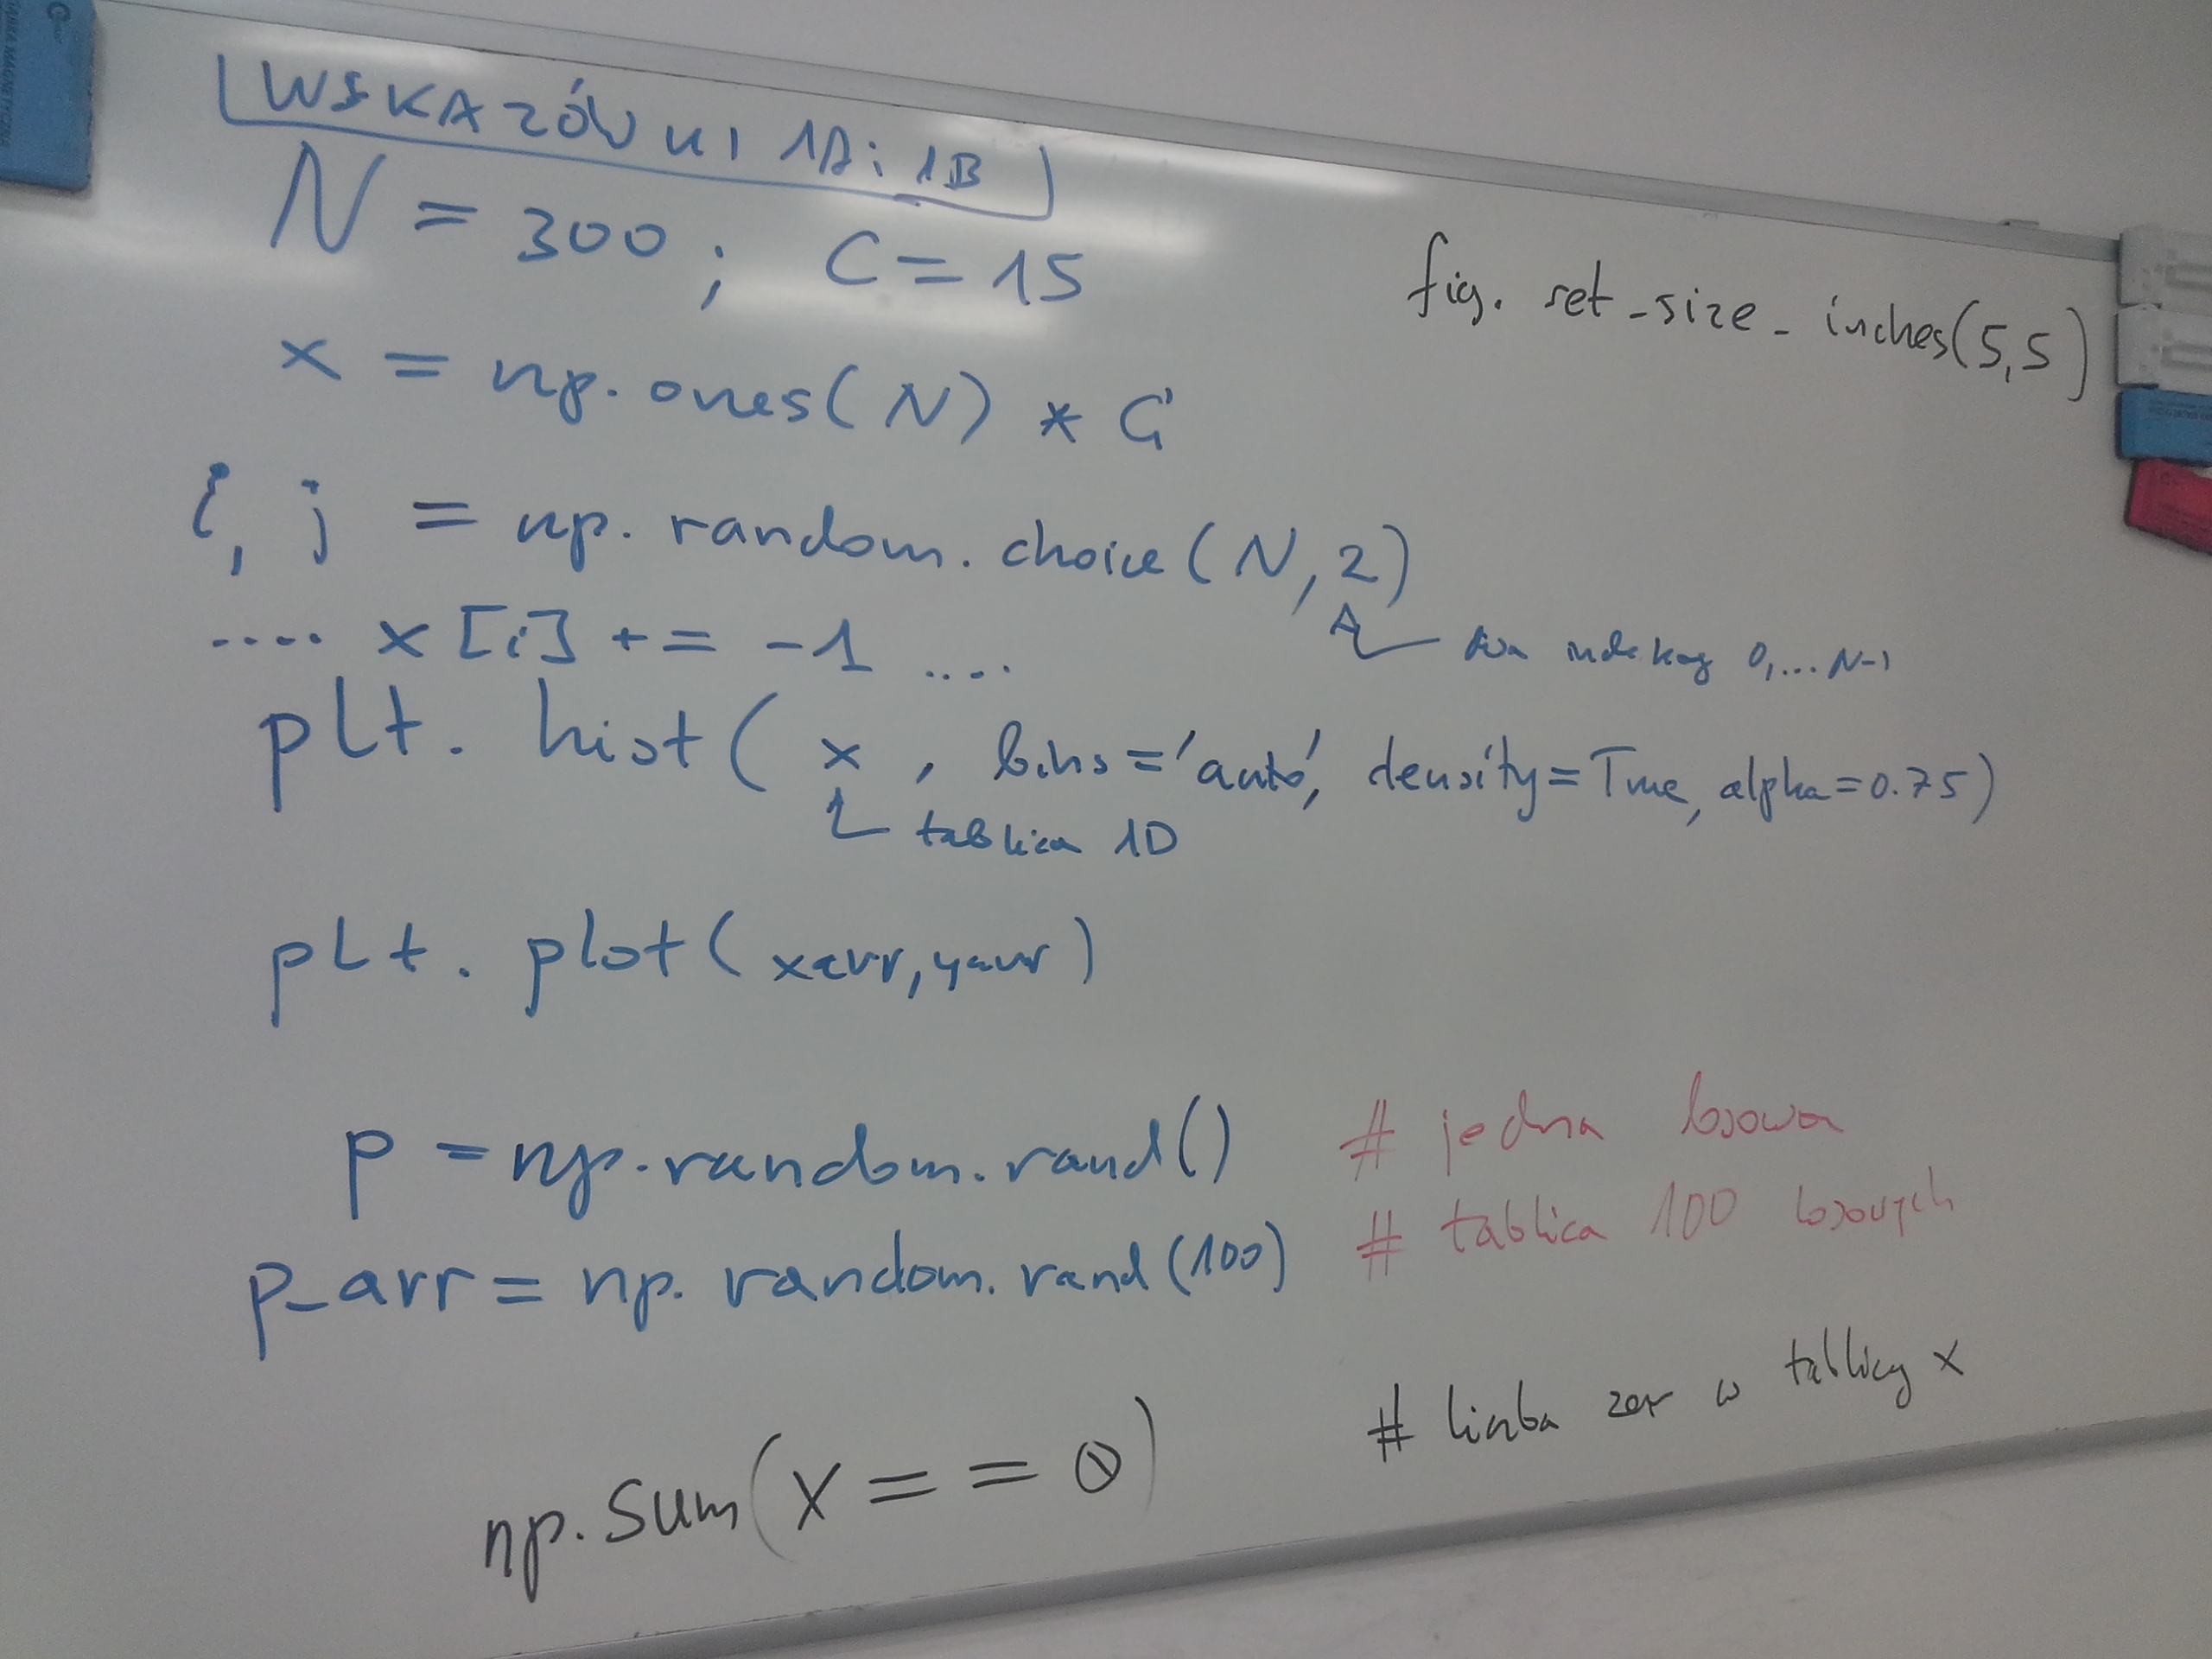 WSKAZÓWKI 1A i 1B
N = 300 ; C = 15
fig. set_size_inches(5,5)
x = np.ones(N) * C
i, j = np.random.choice(N,2)
dwa indeksy 0,...N-1
.... x[i] += -1 ....
plt. hist( x , bins='auto', density=True, alpha=0.75)
tablica 1D
plt. plot( xarr, yarr )
p = np.random.rand() # jedna losowa
p_arr = np. random. rand(100) # tablica 100 losowych
np.sum(x == 0) # liczba zer w tablicy x